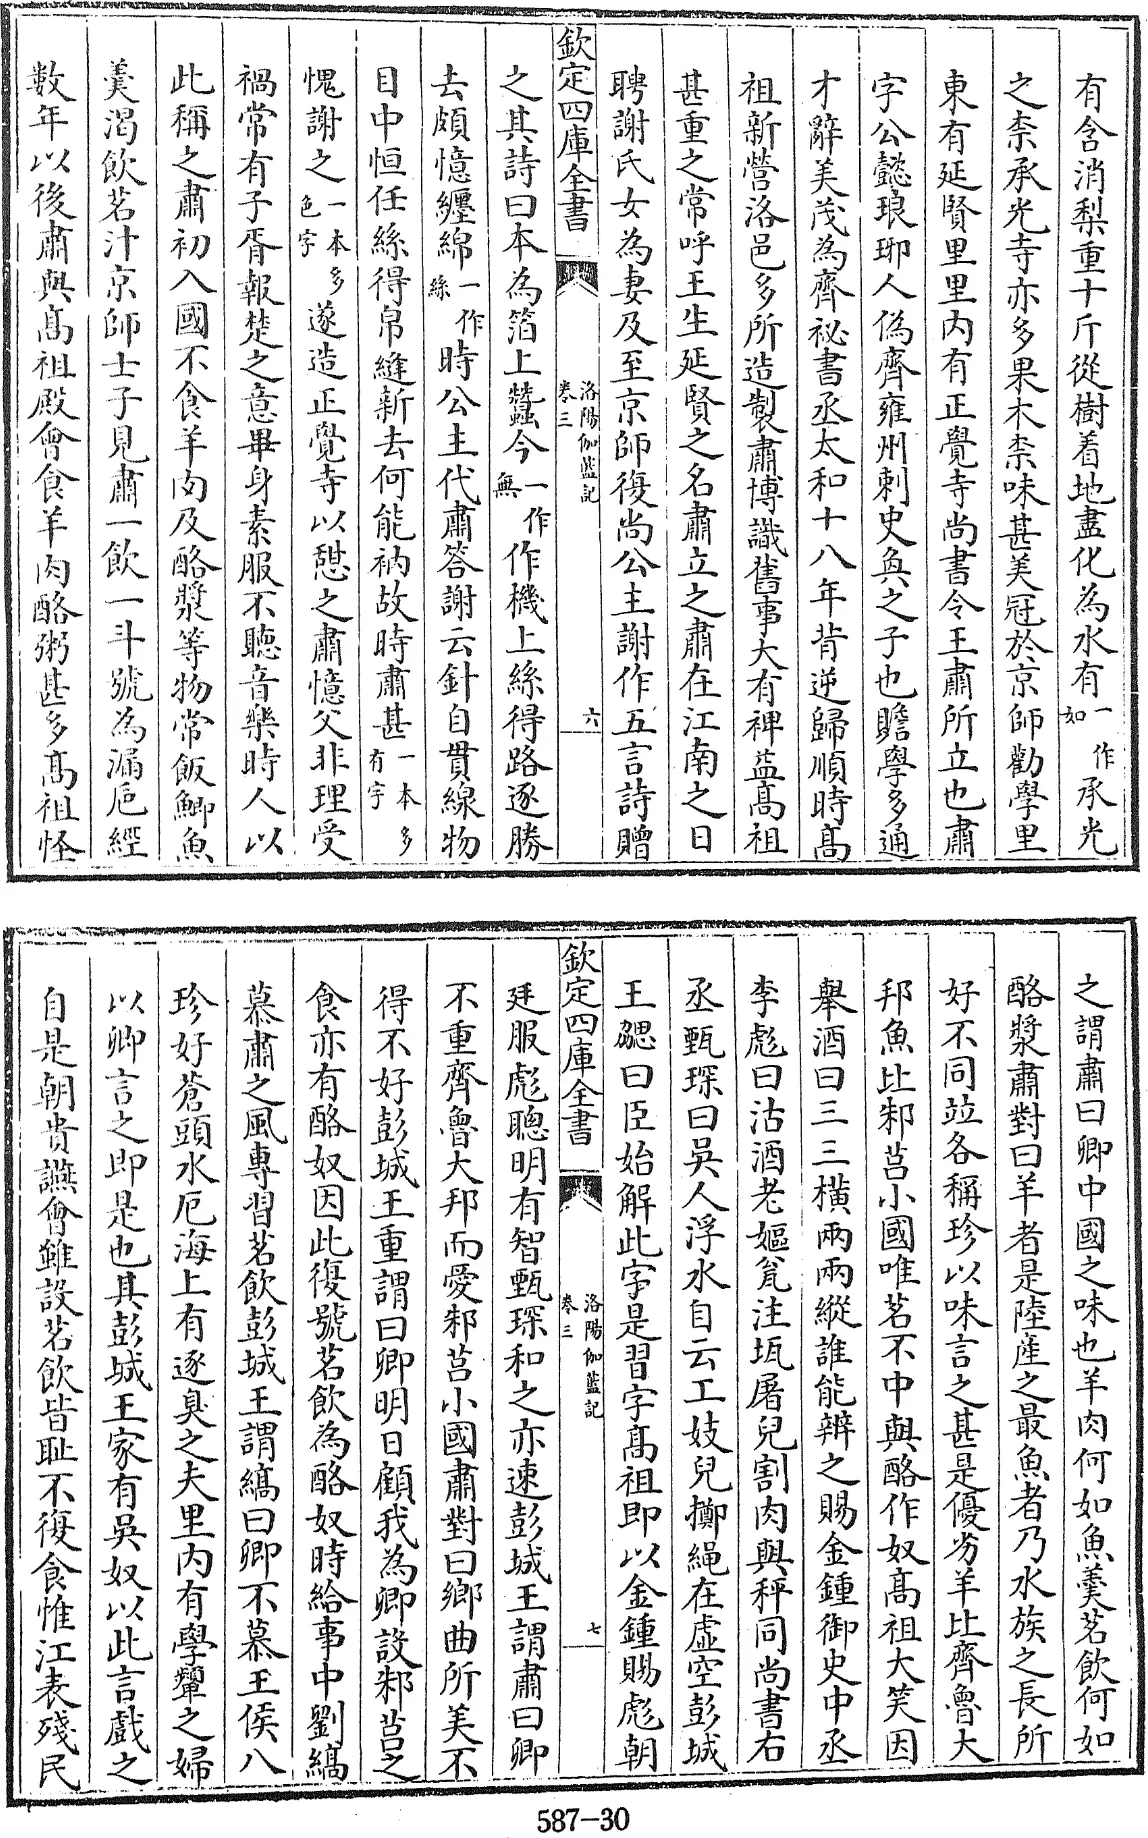 有含消梨重十斤從樹着地盡化為水有一作如承光
之柰承光寺亦多果木柰味甚美冠於京師勸學里
東有延賢里里内有正覺寺尚書令王肅所立也肅
字公懿琅琊人偽齊雍州刺史奐之子也贍學多通
才辭美茂為齊祕書丞太和十八年背逆歸順時髙
祖新營洛邑多所造製肅博識舊事大有裨益髙祖
甚重之常呼王生延賢之名肅立之肅在江南之日
聘謝氏女為妻及至京師復尚公主謝作五言詩贈
欽定四庫全書 洛陽伽藍記卷三 六
之其詩曰本為箔上蠶今一作無作機上絲得路逐勝
去頗憶纒綿一作絲時公主代肅答謝云針自貫線物
目中恒任絲得帛縫新去何能衲故時肅甚一本多有字
愧謝之一本多色字遂造正覺寺以憇之肅憶父非理受
禍常有子胥報楚之意畢身素服不聽音樂時人以
此稱之肅初入國不食羊肉及酪漿等物常飯鯽魚
羹渴飲茗汁京師士子見肅一飲一斗號為漏巵經
數年以後肅與髙祖殿會食羊肉酪粥甚多髙祖怪
之謂肅曰卿中國之味也羊肉何如魚羹茗飲何如
酪漿肅對曰羊者是陸産之最魚者乃水族之長所
好不同竝各稱珍以味言之甚是優劣羊比齊魯大
邦魚比邾莒小國唯茗不中與酪作奴髙祖大笑因
舉酒曰三三橫兩兩縱誰能辨之賜金鍾御史中丞
李彪曰沽酒老嫗瓮注㼛屠兒割肉與秤同尚書右
丞甄琛曰吳人浮水自云工妓兒擲繩在虛空彭城
王勰曰臣始解此字是習字髙祖即以金鍾賜彪朝
欽定四庫全書 洛陽伽藍記卷三 七
廷服彪聰明有智甄琛和之亦速彭城王謂肅曰卿
不重齊魯大邦而愛邾莒小國肅對曰鄉曲所美不
得不好彭城王重謂曰卿明日顧我為卿設邾莒之
食亦有酪奴因此復號茗飲為酪奴時給事中劉縞
慕肅之風專習茗飲彭城王謂縞曰卿不慕王侯八
珍好蒼頭水厄海上有逐臭之夫里内有學顰之婦
以卿言之即是也其彭城王家有吳奴以此言戲之
自是朝貴讌會雖設茗飲皆耻不復食惟江表殘民
587-30